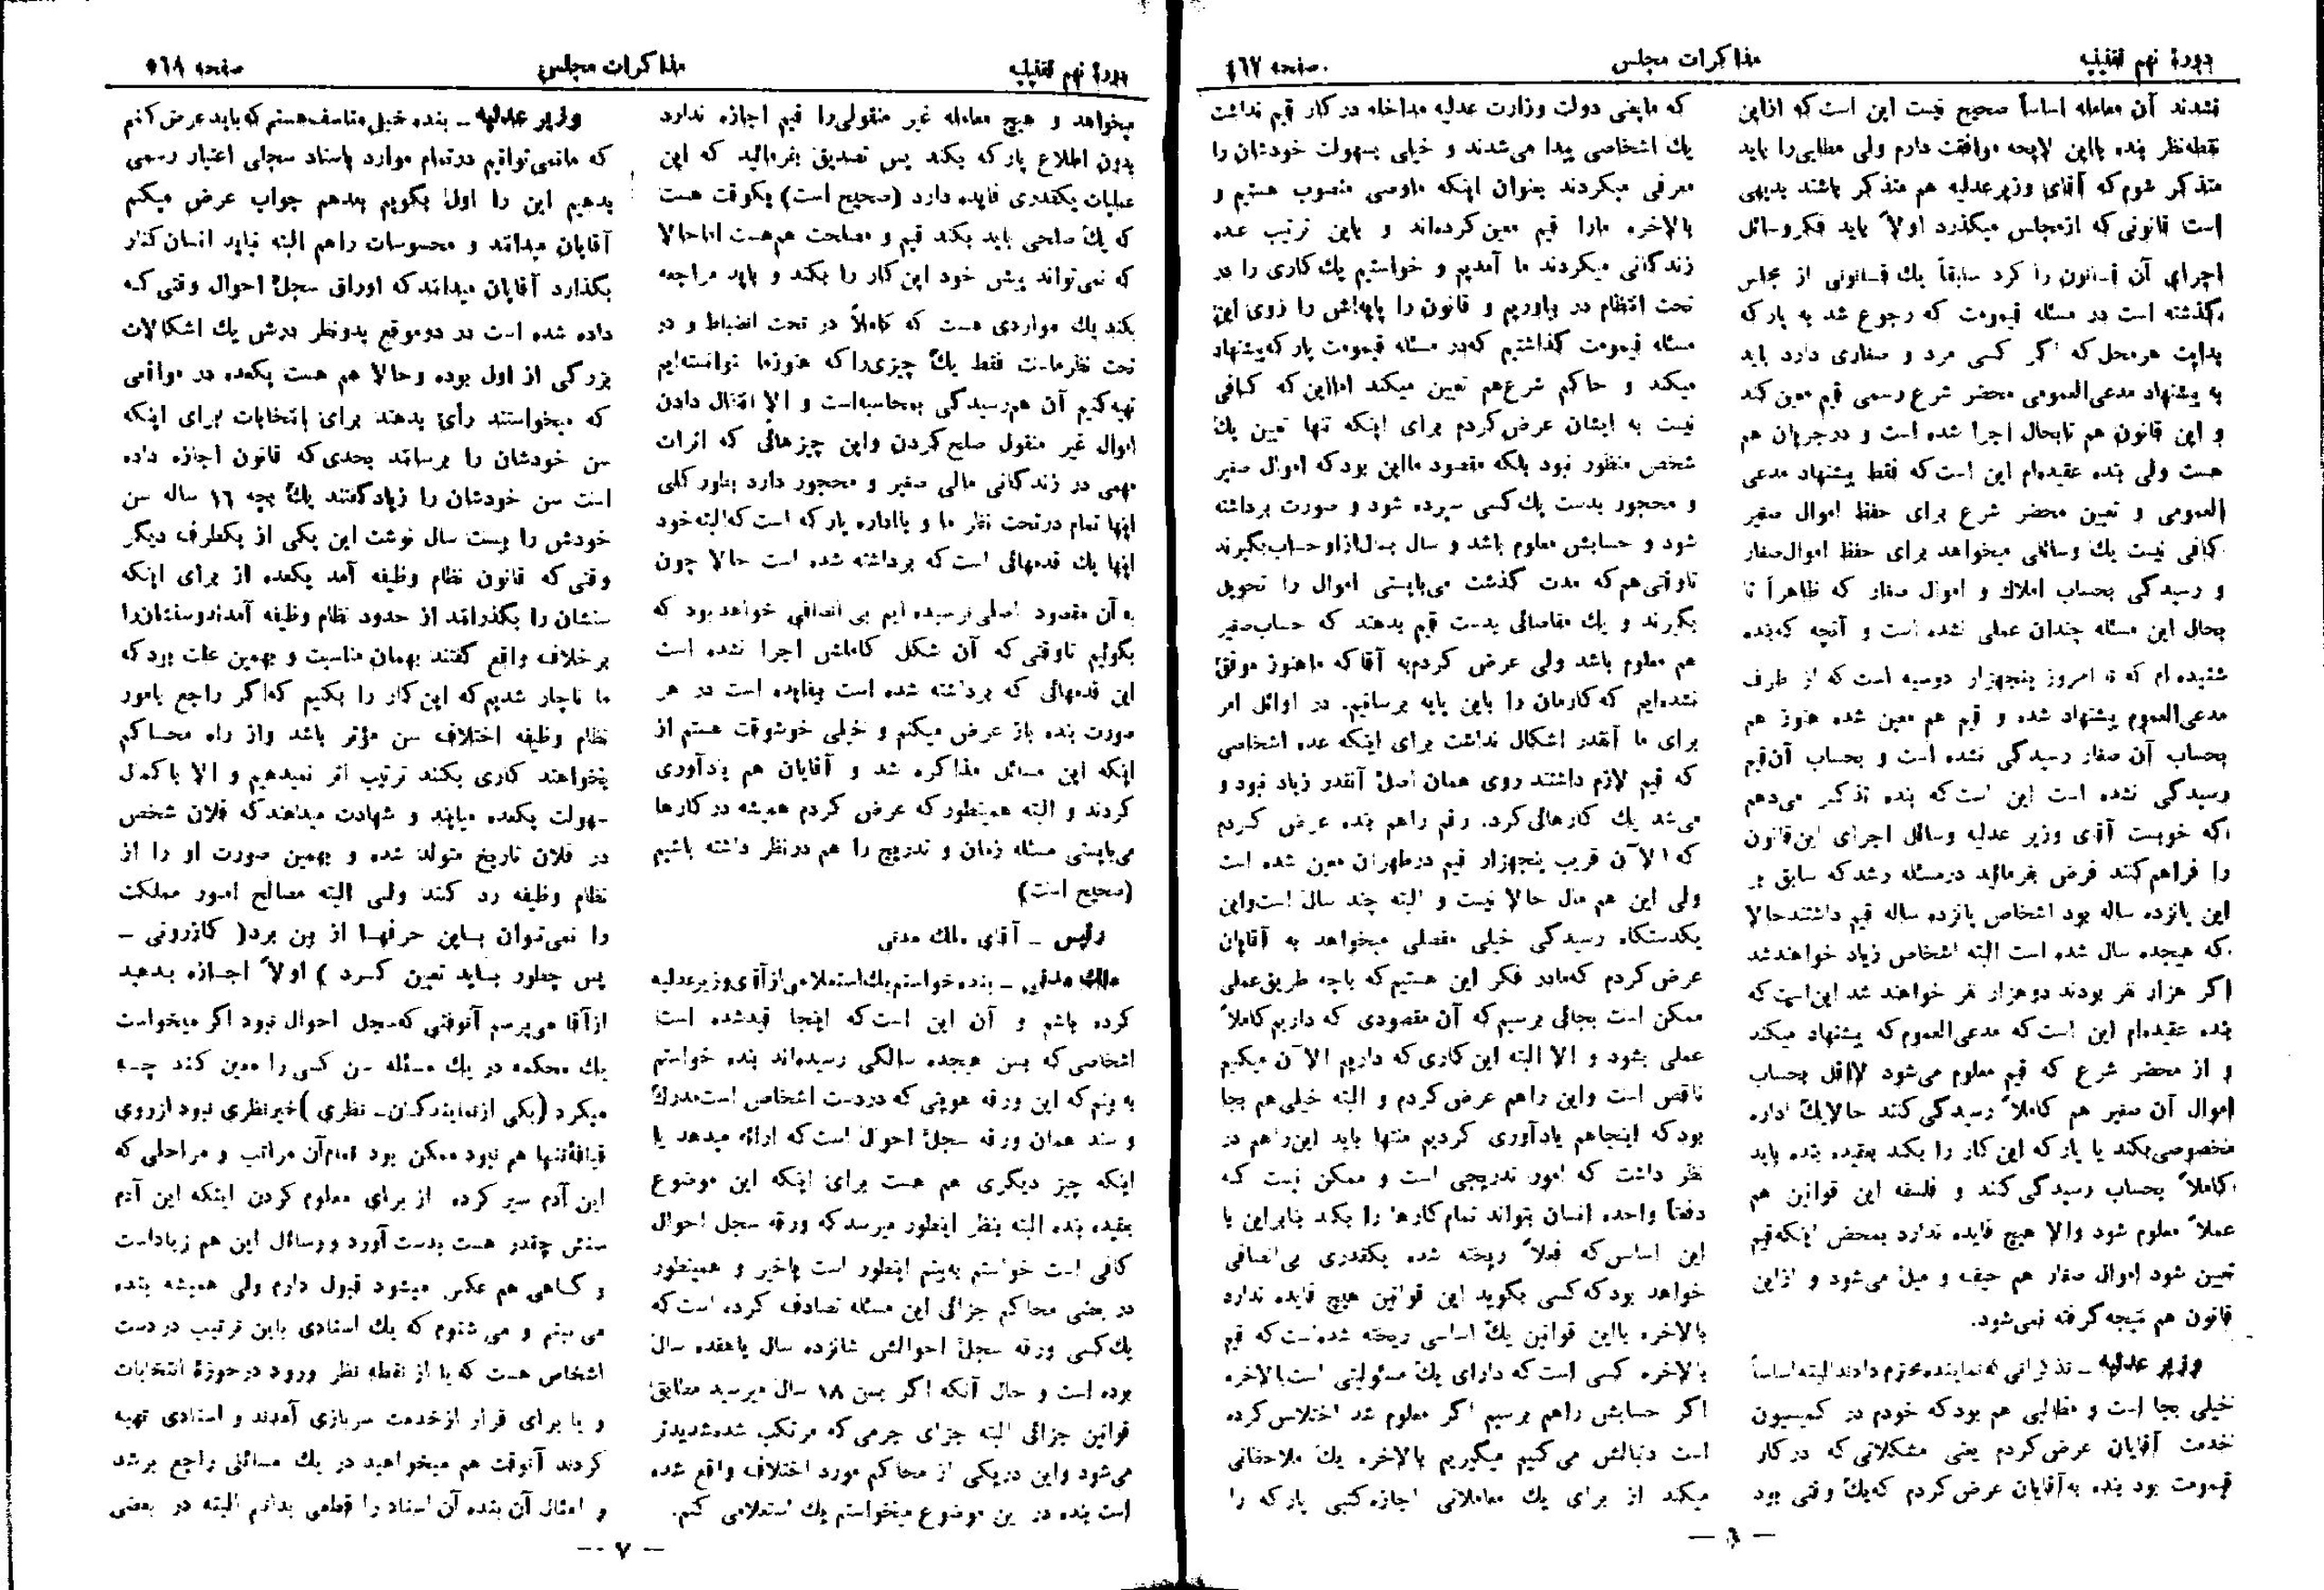 دورهٔ نهم تقنینیه
مذاکرات مجلس
صفحه ٤٦٧
نشدند آن معامله اساساً صحیح نیست این است که ازاین
نقطه‌نظر بنده بااین لایحه موافقت دارم ولی مطالبی‌را باید
متذکر شوم که آقای وزیرعدلیه هم متذکر باشند بدیهی
است قانونی که ازمجلس میگذرد اولاً باید فکر وسائل
اجرای آن قانون را کرد سابقاً یك قانونی از مجلس
گذشته است در مسئله قیمومت که رجوع شد به پارکه
بدایت هرمحل که اگر کسی مرد و صغاری دارد باید
به پیشنهاد مدعی‌العمومی محضر شرع رسمی قیم معین کند
و این قانون هم تابحال اجرا شده است و درجریان هم
هست ولی بنده عقیده‌ام این است که فقط پیشنهاد مدعی
العمومی و تعیین محضر شرع برای حفظ اموال صغیر
کافی نیست یك وسائلی میخواهد برای حفظ اموال‌صغار
و رسیدگی بحساب املاك و اموال صغار که ظاهراً تا
بحال این مسئله چندان عملی نشده است و آنچه که‌بنده
شنیده‌ام که تا امروز پنجهزار دوسیه است که از طرف
مدعی‌العموم پیشنهاد شده و قیم هم معین شده هنوز هم
بحساب آن صغار رسیدگی نشده است و بحساب آن‌قیم
رسیدگی نشده است این است‌که بنده تذکر می‌دهم
که خوبست آقای وزیر عدلیه وسائل اجرای این‌قانون
را فراهم‌کنند فرض بفرمائید درمسئله رشد که سابق بر
این پانزده ساله بود اشخاص پانزده ساله قیم داشتند حالا
که هیجده سال شده است البته اشخاص زیاد خواهند شد
اگر هزار نفر بودند دوهزار نفر خواهند شد این‌است که
بنده عقیده‌ام این است که مدعی‌العموم که پیشنهاد میکند
و از محضر شرع که قیم معلوم می‌شود لااقل بحساب
اموال آن صغیر هم کاملاً رسیدگی کنند حالا یك اداره
مخصوصی بکند یا پارکه این کار را بکند بعقیده بنده باید
کاملاً بحساب رسیدگی کند و فلسفه این قوانین هم
عملاً معلوم شود والا هیچ فایده ندارد بمحض اینکه‌قیم
تعیین شود اموال صغار هم حیف و میل می‌شود و ازاین
قانون هم نتیجه گرفته نمی‌شود.
وزیر عدلیه ـ تذکراتی که نماینده محترم دادند البته اساساً
خیلی بجا است و مطالبی هم بود که خودم در کمیسیون
خدمت آقایان عرض کردم یعنی مشکلاتی که در کار
قیمومت بود بنده به آقایان عرض کردم که یك وقتی بود
که مایعنی دولت وزارت عدلیه مداخله در کار قیم نداشت
یك اشخاصی پیدا می‌شدند و خیلی بسهولت خودشان را
معرفی میکردند بعنوان اینکه ماوصی منصوب هستیم و
بالاخره مارا قیم معین کرده‌اند و باین ترتیب عده
زندگانی میکردند ما آمدیم و خواستیم یك کاری را در
تحت انتظام در بیاوریم و قانون را پایه‌اش را روی این
مسئله قیمومت گذاشتیم که‌در مسئله قیمومت پارکه‌پیشنهاد
میکند و حاکم شرع‌هم تعیین میکند امااین که کافی
نیست به ایشان عرض کردم برای اینکه تنها تعیین یك
شخص منظور نبود بلکه مقصود مااین بود که اموال صغیر
و محجور بدست یك کسی سپرده شود و صورت برداشته
شود و حسابش معلوم باشد و سال بسال ازاو حساب بگیرند
تاوقتی هم که مدت گذشت می‌بایستی اموال را تحویل
بگیرند و یك مفاصائی بدست قیم بدهند که حساب صغیر
هم معلوم باشد ولی عرض کردم به آقا که ما هنوز موفق
نشده‌ایم که کارمان را باین پایه برسانیم. در اوائل امر
برای ما آنقدر اشکال نداشت برای اینکه عده اشخاصی
که قیم لازم داشتند روی همان اصل آنقدر زیاد نبود و
می‌شد یك کارهائی کرد. رقم راهم بنده عرض کردم
که الآن قریب پنجهزار قیم درطهران معین شده است
ولی این هم مال حالا نیست و البته چند سال است‌واین
یکدستگاه رسیدگی خیلی مفصلی میخواهد به آقایان
عرض کردم که‌مادر فکر این هستیم که باچه طریق عملی
ممکن است بجائی برسیم که آن مقصودی که داریم کاملاً
عملی بشود و الا البته این کاری که داریم الآن میکنیم
ناقص است واین راهم عرض کردم و البته خیلی‌هم بجا
بود که اینجاهم یادآوری کردیم منتها باید این‌راهم در
نظر داشت که امور تدریجی است و ممکن نیست که
دفعتاً واحده انسان بتواند تمام کارها را بکند بنابراین با
این اساس که فعلاً ریخته شده یکقدری بی‌انصافی
خواهد بود که کسی بگوید این قوانین هیچ فایده ندارد
بالاخره بااین قوانین یك اساسی ریخته شده‌است که قیم
بالاخره کسی است که دارای یك مسئولیتی است‌بالاخره
اگر حسابش راهم برسیم اگر معلوم شد اختلاس کرده
است دنبالش می‌کنیم میگیریم بالاخره یك ملاحظاتی
میکند از برای یك معاملاتی اجازه کتبی پارکه را
— ٦ —
دورهٔ نهم تقنینیه
مذاکرات مجلس
صفحه ٤٦٨
میخواهد و هیچ معامله غیر منقولی را قیم اجازه ندارد
بدون اطلاع پارکه بکند پس تصدیق بفرمائید که این
عملیات یکقدری فایده دارد (صحیح است) یکوقت هست
که یك صلحی باید بکند قیم و مصلحت هم‌هست اماحالا
که نمی‌تواند پیش خود این کار را بکند و باید مراجعه
بکند یك مواردی هست که کاملاً در تحت انضباط و در
تحت نظرماست فقط یك چیزی‌را که هنوزما نتوانسته‌ایم
تهیه کنیم آن هم‌رسیدگی بمحاسبه‌است و الا انتقال دادن
اموال غیر منقول صلح‌کردن واین چیزهائی که اثرات
مهمی در زندگانی مالی صغیر و محجور دارد بطور کلی
اینها تمام درتحت نظر ما و بااداره پارکه است که‌البته‌خود
اینها یك قدمهائی است که برداشته شده است حالا چون
به آن مقصود اصلی نرسیده‌ایم بی انصافی خواهد بود که
بگوئیم تاوقتی که آن شکل کاملش اجرا نشده است
این قدمهائی که برداشته شده است بیفایده است در هر
صورت بنده باز عرض میکنم و خیلی خوشوقت هستم از
اینکه این مسائل مذاکره شد و آقایان هم یادآوری
کردند و البته همینطور که عرض کردم همیشه در کارها
می‌بایستی مسئله زمان و تدریج را هم درنظر داشته باشیم
(صحیح است)
رئیس ـ آقای ملك مدنی
ملك مدنی ـ بنده خواستم یك استعلامی از آقای وزیر عدلیه
کرده باشم و آن این است که اینجا قیدشده است
اشخاصی که بسن هیجده سالگی رسیده‌اند بنده خواستم
به بینم که این ورقه هویتی که دردست اشخاص است‌مدرك
و سند همان ورقه سجل احوال است که ارائه میدهد یا
اینکه چیز دیگری هم هست برای اینکه این موضوع
بعقیده بنده البته بنظر اینطور میرسد که ورقه سجل احوال
کافی است خواستم به‌بینم اینطور است یاخیر و همینطور
در بعضی محاکم جزائی این مسئله تصادف کرده است که
یك کسی ورقه سجل احوالش شانزده سال یاهفده سال
بوده است و حال آنکه اگر بسن ۱۸ سال میرسید مطابق
قوانین جزائی البته جزای جرمی که مرتکب شده‌شدیدتر
می‌شود واین دریکی از محاکم مورد اختلاف واقع شده
است بنده در این موضوع میخواستم یك استعلامی کنم.
وزیر عدلیه ـ بنده خیلی متاسف هستم که باید عرض کنم
که مانمی‌توانیم درتمام موارد باسناد سجلی اعتبار رسمی
بدهیم این را اول بگویم بعدهم جواب عرض میکنم
آقایان میدانند و محسوسات راهم البته نباید انسان کنار
بگذارد آقایان میدانند که اوراق سجل احوال وقتی که
داده شده است در دوموقع بدونظر درش یك اشکالات
بزرگی از اول بوده و حالا هم هست یکعده در مواقعی
که میخواستند رأی بدهند برای انتخابات برای اینکه
سن خودشان را برسانند بحدی که قانون اجازه داده
است سن خودشان را زیاد گفتند یك بچه ۱٦ ساله سن
خودش را بیست سال نوشت این یکی از یکطرف دیگر
وقتی که قانون نظام وظیفه آمد یکعده از برای اینکه
سنشان را بگذرانند از حدود نظام وظیفه آمدند وسنشان را
برخلاف واقع گفتند بهمان مناسبت و بهمین علت بود که
ما ناچار شدیم که این کار را بکنیم که‌اگر راجع بامور
نظام وظیفه اختلاف سن مؤثر باشد واز راه محاکم
بخواهند کاری بکنند ترتیب اثر نمیدهیم و الا با کمال
سهولت یکعده میایند و شهادت میدهند که فلان شخص
در فلان تاریخ متولد شده و بهمین صورت او را از
نظام وظیفه رد کنند ولی البته مصالح امور مملکت
را نمی‌توان باین حرفها از بین برد( کازرونی ـ
پس چطور باید تعیین کرد ) اولاً اجازه بدهید
ازآقا می‌پرسم آنوقتی که‌سجل احوال نبود اگر میخواست
یك محکمه در یك مسئله سن کسی را معین کند چه
میکرد (یکی ازنمایندگان ـ نظری )خیرنظری نبود ازروی
قیافه‌تنها هم نبود ممکن بود تمام‌آن مراتب و مراحلی که
این آدم سیر کرده از برای معلوم کردن اینکه این آدم
سنش چقدر هست بدست آورد و وسائل این هم زیاداست
و گاهی هم عکس میشود قبول دارم ولی همیشه بنده
می بینم و می شنوم که یك اسنادی باین ترتیب در دست
اشخاص هست که یا از نقطه نظر ورود درحوزهٔ انتخابات
و یا برای فرار ازخدمت سربازی آمدند و اسنادی تهیه
کردند آنوقت هم میخواهید در یك مسائلی راجع برشد
و امثال آن بنده آن اسناد را قطعی بدانم البته در بعضی
— ۷ —